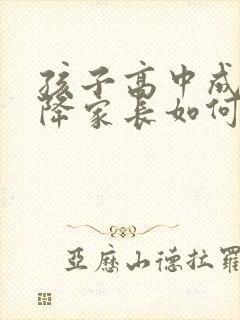 孩子高中成
降家长如何
亚历山德拉罗